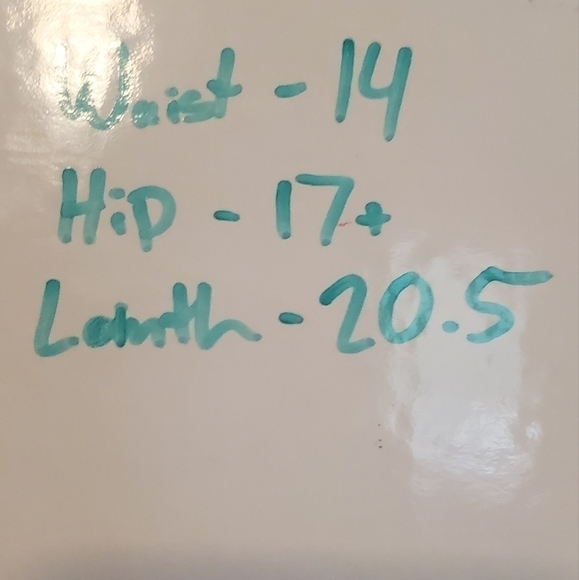 Waist - 14
Hip - 17+
Lainth - 20.5